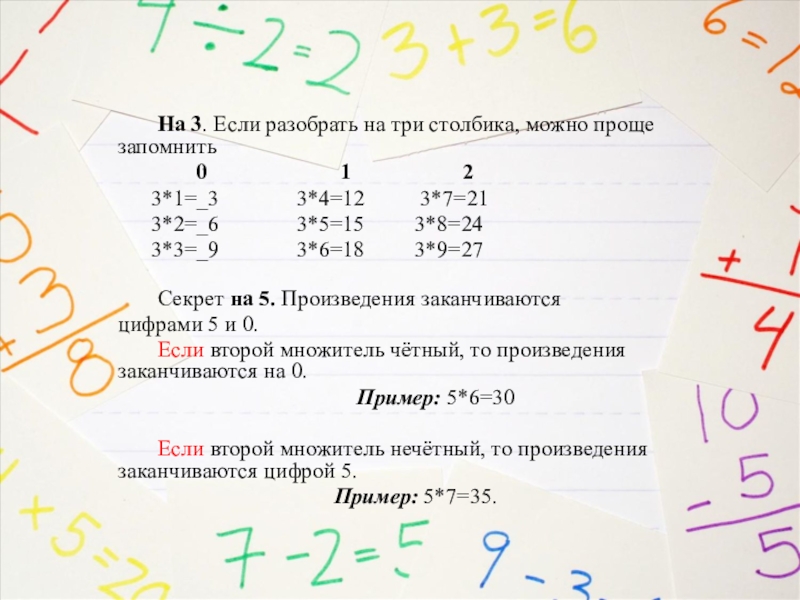 4 ÷ 2 = 2
3 + 3 = 6
6 = 12
На 3. Если разобрать на три столбика, можно проще
запомнить
0 1 2
3*1=_3 3*4=12 3*7=21
3*2=_6 3*5=15 3*8=24
3*3=_9 3*6=18 3*9=27
Секрет на 5. Произведения заканчиваются
цифрами 5 и 0.
Если второй множитель чётный, то произведения
заканчиваются на 0.
Пример: 5*6=30
Если второй множитель нечётный, то произведения
заканчиваются цифрой 5.
Пример: 5*7=35.
3
+
8
+
4
10
- 5
5
+ 5 = 20
7 - 2 = 5
9 - 3